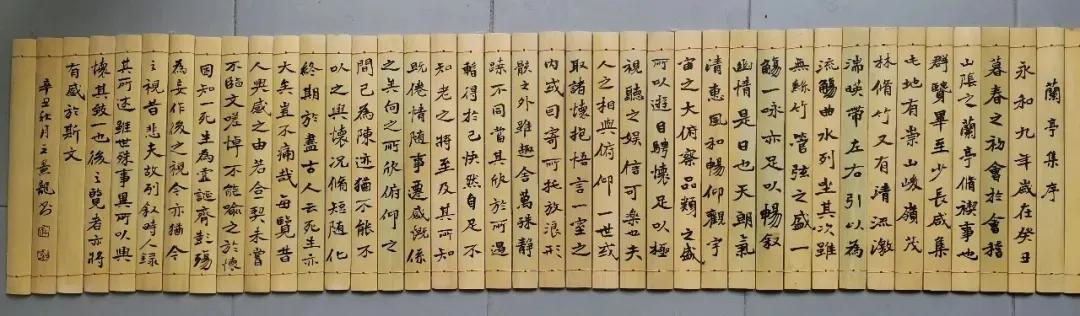 蘭亭集序
永和九年歲在癸丑
暮春之初會於會稽
山陰之蘭亭脩禊事也
群賢畢至少長咸集
此地有崇山峻嶺茂
林脩竹又有清流激
湍映帶左右引以為
流觴曲水列坐其次雖
無絲竹管弦之盛一
觴一咏亦足以暢叙
幽情是日也天朗氣
清惠風和暢仰觀宇
宙之大俯察品類之盛
所以遊目騁懷足以極
視聽之娛信可樂也夫
人之相與俯仰一世或
取諸懷抱悟言一室之
內或因寄所托放浪形
骸之外雖趣舍萬殊靜
躁不同當其欣於所遇
暫得於己快然自足不
知老之將至及其所知
既倦情隨事遷感慨係
之矣向之所欣俯仰之
間已為陳迹猶不能不
以之興懷況脩短隨化
終期於盡古人云死生亦
大矣豈不痛哉每覽昔
人興感之由若合一契未嘗
不臨文嗟悼不能喻之於懷
固知一死生為虛誕齊彭殤
為妄作後之視今亦猶今
之視昔悲夫故列叙時人錄
其所述雖世殊事異所以興
懷其致一也後之覽者亦將
有感於斯文
辛丑秋月王景龍書